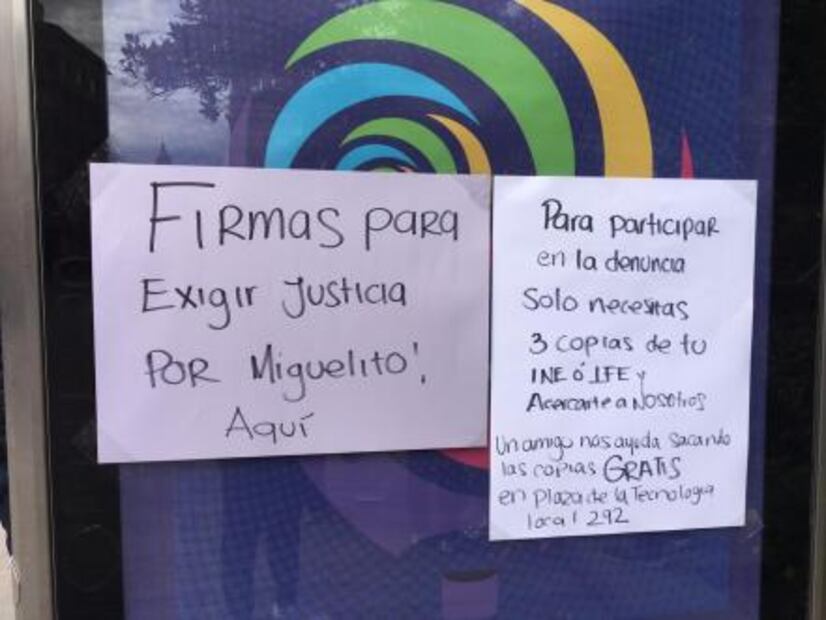 FIRMAS PARA
Exigir Justicia
POR Miguelito!,
Aquí
Para participar
en la denuncia
Solo necesitas
3 copias de tu
INE ó IFE y
Acercarte a Nosotros
Un amigo nos ayuda sacando
las copias GRATIS
en plaza de la Tecnologia
local 292